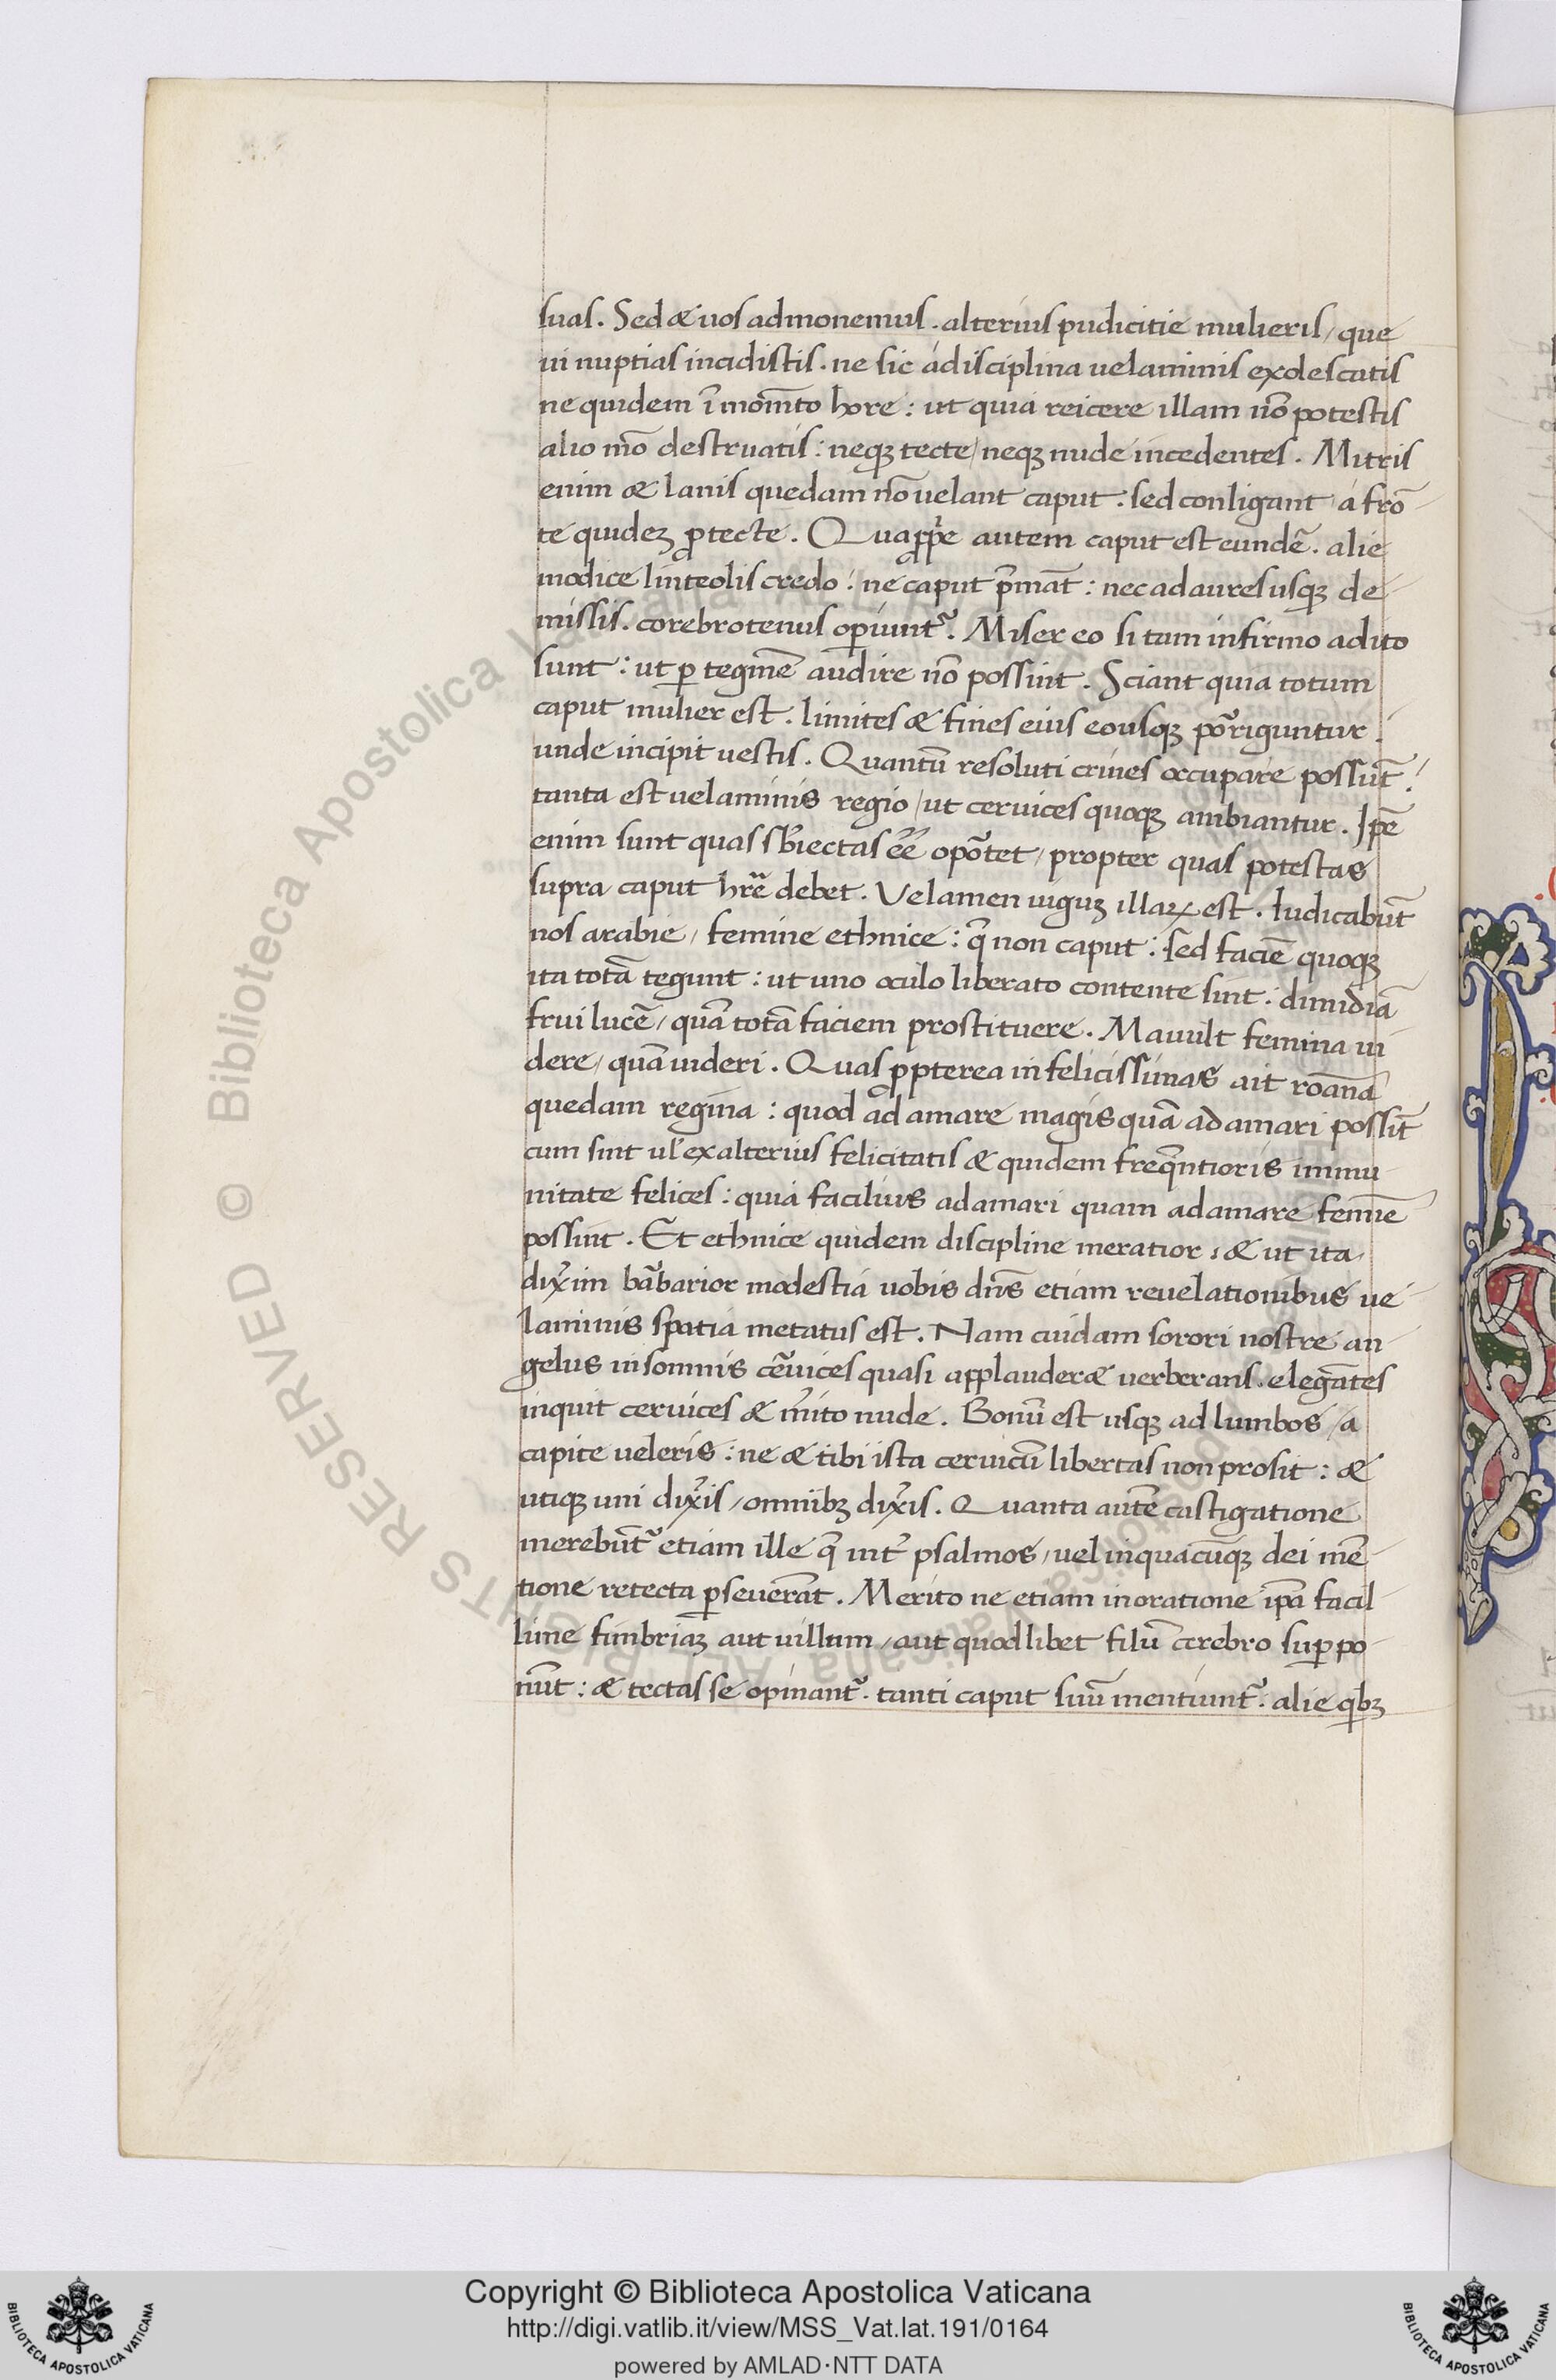 suas. Sed & uos admonemus. alterius pudicitie mulieris, que
in nuptias incidistis. ne sic a disciplina uelaminis exolescatis
ne quidem ĩ mom̃to hore: ut quia reicere illam nõ potestis
alio mõ destruatis: neqꝫ tecte, neqꝫ nude incedentes. Mitris
enim & lanis quedam nõ uelant caput. sed conligant a frõ
te quideꝫ ꝓtecte. Qua ꝓpꝛe autem caput est eundẽ. alie
modice linteolis credo: ne caput p̃mãt: nec ad aures usqꝫ de
missis. cerebrotenus oꝑiunt᷑. Miser eo si tam infirmo adito
sunt: ut ꝑ tegmẽ audire nõ possint. Sciant quia totum
caput mulier est. limites & fines eius eousqꝫ põriguntur.
unde incipit uestis. Quantũ resoluti crines occupare possũt.
tanta est uelaminis regio, ut ceruices quoqꝫ ambiantur. Ip̃e
enim sunt quas sb̃iectas eẽ opõtet, propter quas potestas
supra caput hr̃e debet. Velamen iuguꝫ illaꝝ est. Iudicabũt
nos arabie, femine ethnice: q̃ non caput: sed faciẽ quoqꝫ
ita totã tegunt: ut uno oculo liberato contente sint: dimidiã
frui lucẽ, quã totã faciem prostituere. Mauult femina ui
dere, quã uideri. Quas ꝓpterea infelicissimas ait roãna
quedam regina: quod ad amare magis quã adamari possĩt
cum sint ul̃ ex alterius felicitatis & quidem freq̃ntioris immu
nitate felices: quia facilius adamari quam adamare femĩe
possint. Et ethnice quidem discipline meratior, & ut ita
dix̃im bãbarior modestia uobis dñs etiam reuelationibus ue
laminis spatia metatus est. Nam cuidam sorori nostre an
gelus in somnis cẽuices quasi applauder& uerberans. elegãtes
inquit ceruices & m̃ito nude. Bonũ est usqꝫ ad lumbos, a
capite ueleris: ne & tibi ista ceruicũ libertas non prosit: &
utiqꝫ uni dix̃is, omniibꝫ dix̃is. Quanta autẽ castigatione
merebũt᷑ etiam ille q̃ int̃ psalmos, uel inquacũqꝫ dei mẽ
tione retecta ꝑseuerãt. Merito ne etiam in oratione ip̃a facil
lime fimbriaꝫ aut uillum, aut quodlibet filũ cerebro suꝑpo
nũt: & tectas se opinant᷑. tanti caput suũ mentiunt᷑. alie qbꝫ
Copyright © Biblioteca Apostolica Vaticana
http://digi.vatlib.it/view/MSS_Vat.lat.191/0164
powered by AMLAD·NTT DATA
BIBLIOTECA APOSTOLICA VATICANA
BIBLIOTECA APOSTOLICA VATICANA